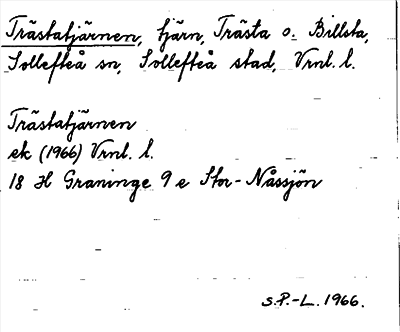 Trästatjärnen, tjärn, Trästa o. Billsta,
Sollefteå sn, Sollefteå stad, Vrnl. l.
Trästatjärnen
ek (1966) Vrnl. l.
18 H Graninge 9 e Stor-Nåssjön
S.P.-L. 1966.